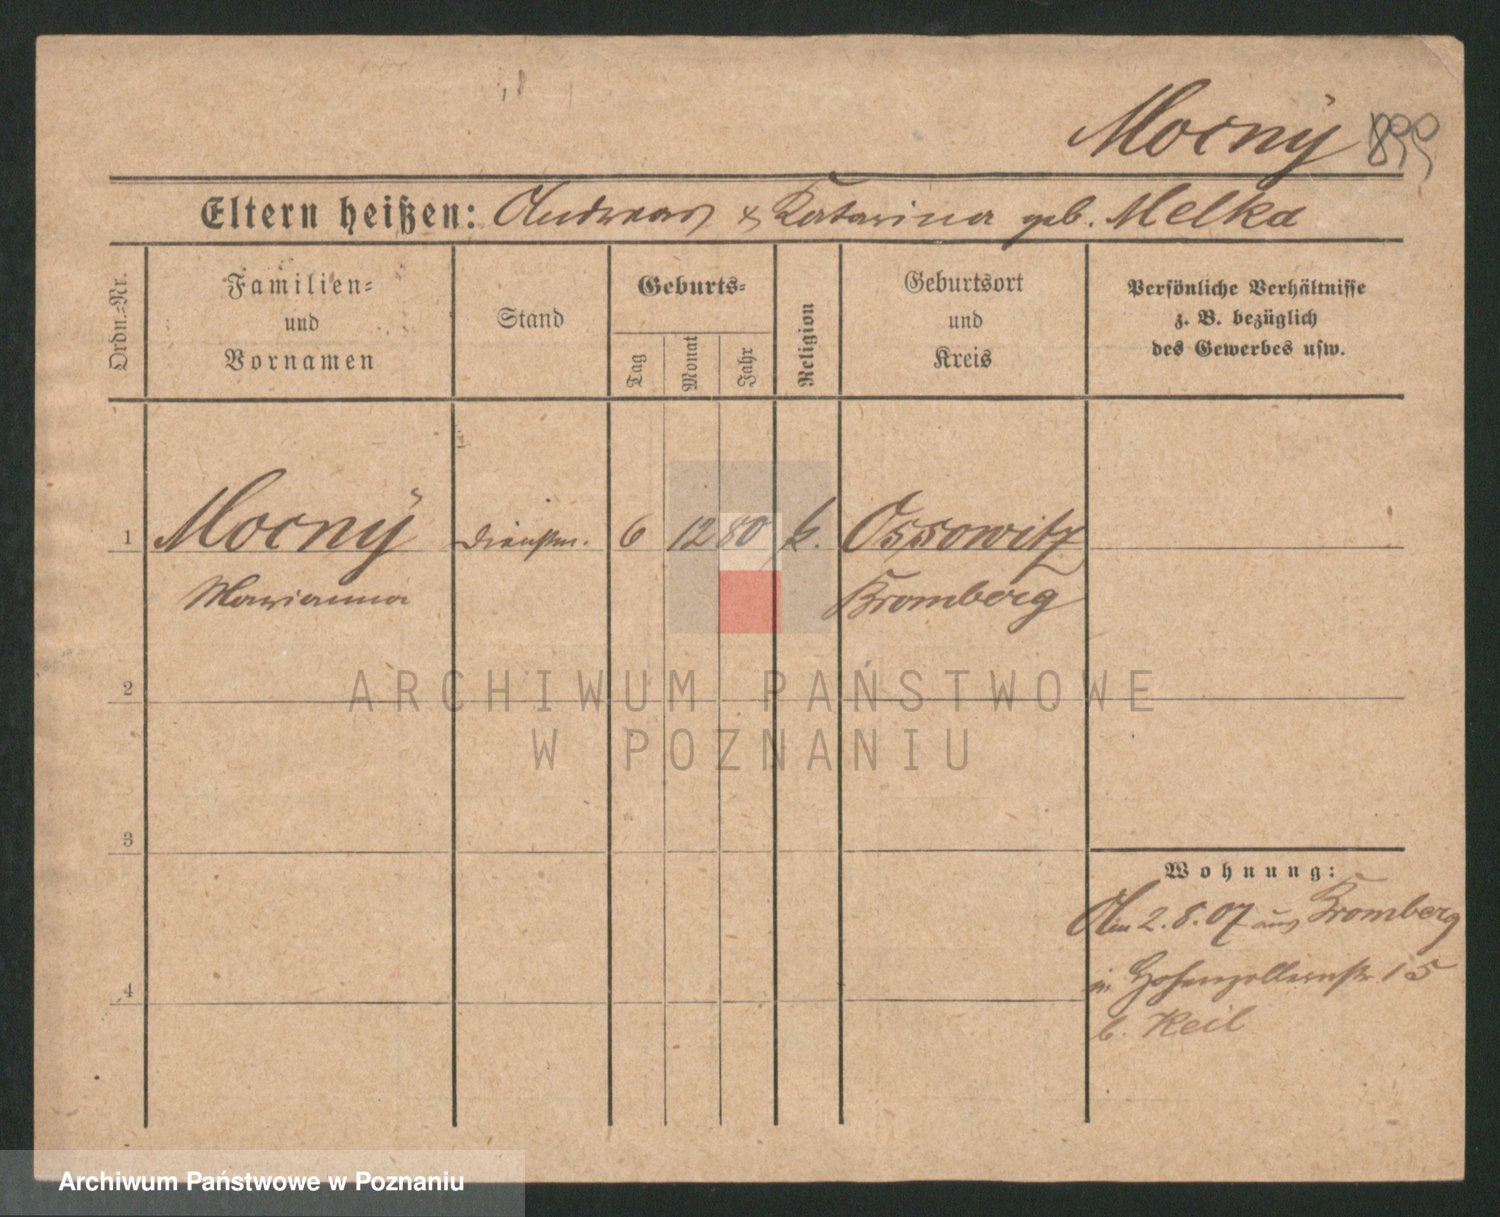 Mocny 899
Eltern heißen: Andreas & Katarina geb. Melka
Ordn.-Nr.
Familien-
und
Vornamen
Stand
Geburts-
Tag
Monat
Jahr
Religion
Geburtsort
und
Kreis
Persönliche Verhältnisse
z. B. bezüglich
des Gewerbes usw.
1 Mocny Dienstm. 6 12 80 k. Ossowitz
Marianna Bromberg
2
ARCHIWUM PAŃSTWOWE
W POZNANIU
3
Wohnung:
Am 2.8.07 aus Bromberg
4
in Hohenzollernstr. 15
b. Keil
Archiwum Państwowe w Poznaniu